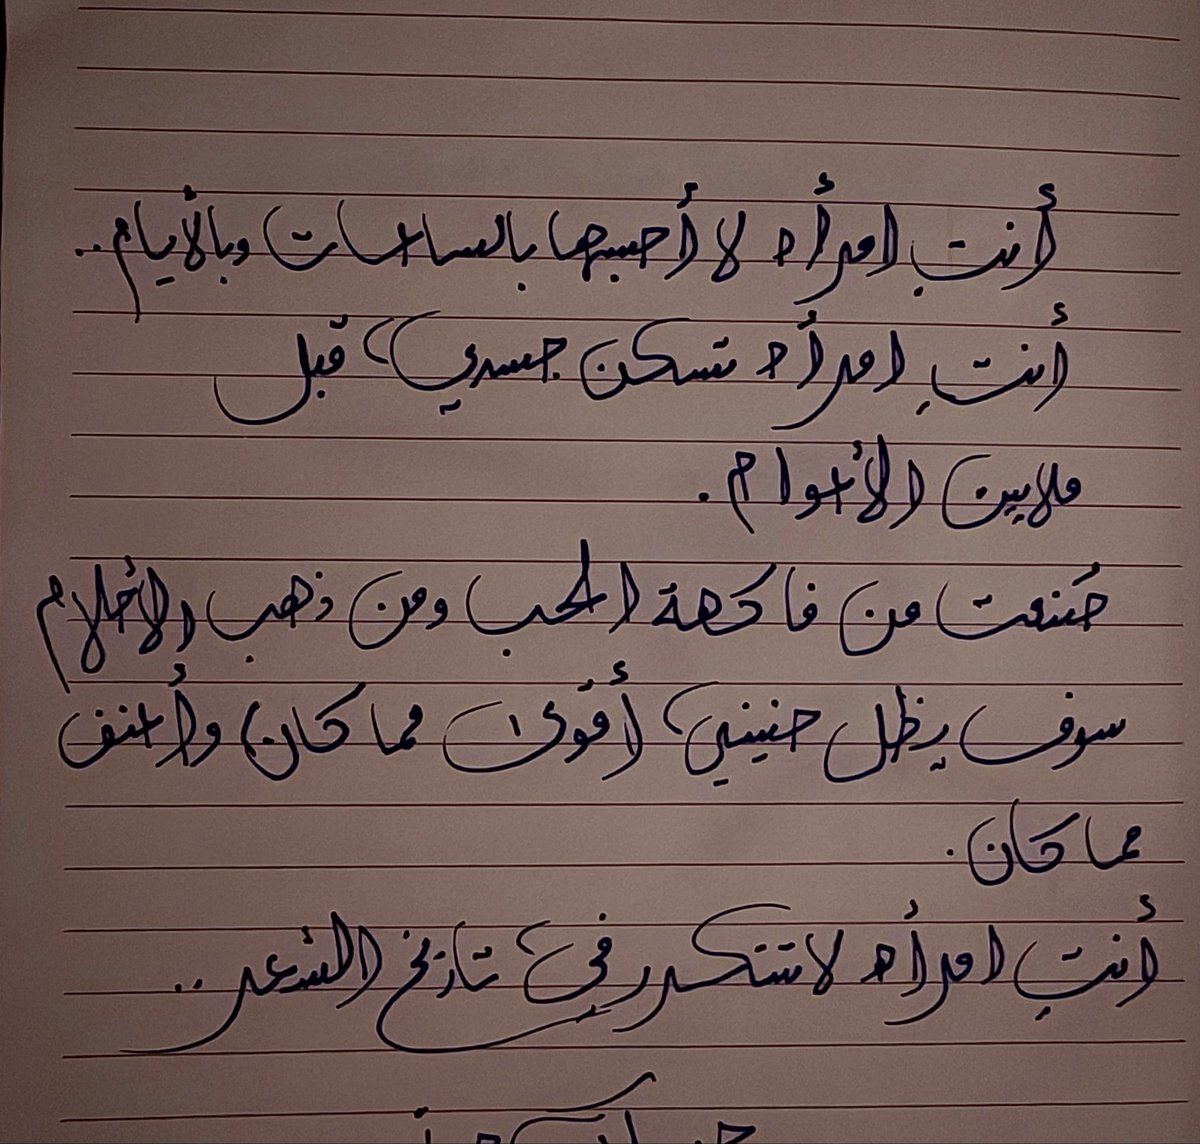 أنتِ امرأه لا أحسبها بالساعات وبالأيام..
أنتِ امرأه تسكن جسدي قبل
ملايين الأعوام.
صُنعت من فاكهة الحب ومن ذهب الأحلام
سوف يظل حنيني أقوى مما كان وأعنف
مما كان.
أنتِ امرأه لا تتكرر في تاريخ الشعر..